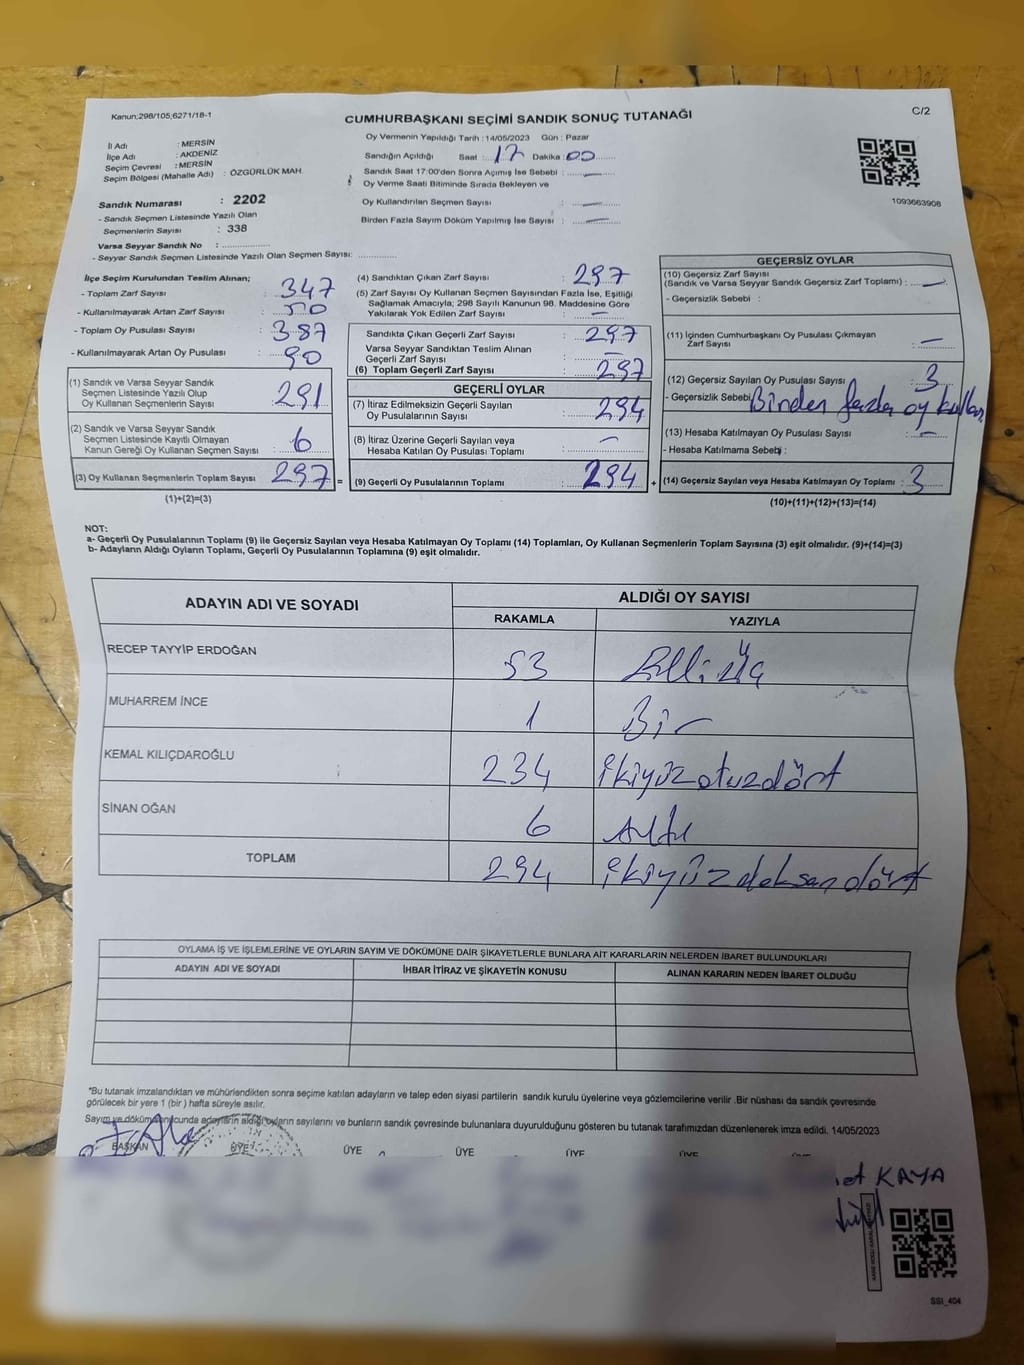 Kanun:298/105;6271/18-1
C/2
CUMHURBAŞKANI SEÇİMİ SANDIK SONUÇ TUTANAĞI
İl Adı : MERSİN
İlçe Adı : AKDENİZ
Seçim Çevresi : MERSİN
Seçim Bölgesi (Mahalle Adı) : ÖZGÜRLÜK MAH.
Sandık Numarası : 2202
- Sandık Seçmen Listesinde Yazılı Olan
Seçmenlerin Sayısı : 338
Varsa Seyyar Sandık No : ..............
- Seyyar Sandık Seçmen Listesinde Yazılı Olan Seçmen Sayısı: ..............
Oy Vermenin Yapıldığı Tarih : 14/05/2023 Gün : Pazar
Sandığın Açıldığı Saat : 17 Dakika : 00
Sandık Saat 17:00'den Sonra Açımış İse Sebebi : —
Oy Verme Saati Bitiminde Sırada Bekleyen ve
Oy Kullandırılan Seçmen Sayısı : —
Birden Fazla Sayım Döküm Yapılmış İse Sayısı : —
1093663908
İlçe Seçim Kurulundan Teslim Alınan;
- Toplam Zarf Sayısı : 347
- Kullanılmayarak Artan Zarf Sayısı : 50
- Toplam Oy Pusulası Sayısı : 387
- Kullanılmayarak Artan Oy Pusulası : 90
(1) Sandık ve Varsa Seyyar Sandık
Seçmen Listesinde Yazılı Olup
Oy Kullanan Seçmenlerin Sayısı : 291
(2) Sandık ve Varsa Seyyar Sandık
Seçmen Listesinde Kayıtlı Olmayan
Kanun Gereği Oy Kullanan Seçmen Sayısı : 6
(3) Oy Kullanan Seçmenlerin Toplam Sayısı : 297 =
(1)+(2)=(3)
(4) Sandıktan Çıkan Zarf Sayısı : 297
(5) Zarf Sayısı Oy Kullanan Seçmen Sayısından Fazla İse, Eşitliği
Sağlamak Amacıyla; 298 Sayılı Kanunun 98. Maddesine Göre
Yakılarak Yok Edilen Zarf Sayısı : —
Sandıkta Çıkan Geçerli Zarf Sayısı : 297
Varsa Seyyar Sandıktan Teslim Alınan
Geçerli Zarf Sayısı : —
(6) Toplam Geçerli Zarf Sayısı : 297
GEÇERLİ OYLAR
(7) İtiraz Edilmeksizin Geçerli Sayılan
Oy Pusulalarının Sayısı : 294
(8) İtiraz Üzerine Geçerli Sayılan veya
Hesaba Katılan Oy Pusulası Toplamı : —
(9) Geçerli Oy Pusulalarının Toplamı : 294 +
GEÇERSİZ OYLAR
(10) Geçersiz Zarf Sayısı
(Sandık ve Varsa Seyyar Sandık Geçersiz Zarf Toplamı) : —
- Geçersizlik Sebebi :
(11) İçinden Cumhurbaşkanı Oy Pusulası Çıkmayan
Zarf Sayısı : —
(12) Geçersiz Sayılan Oy Pusulası Sayısı : 3
- Geçersizlik Sebebi Birden fazla oy kullan.
(13) Hesaba Katılmayan Oy Pusulası Sayısı : —
- Hesaba Katılmama Sebebi :
(14) Geçersiz Sayılan veya Hesaba Katılmayan Oy Toplamı : 3
(10)+(11)+(12)+(13)=(14)
NOT:
a- Geçerli Oy Pusulalarının Toplamı (9) ile Geçersiz Sayılan veya Hesaba Katılmayan Oy Toplamı (14) Toplamları, Oy Kullanan Seçmenlerin Toplam Sayısına (3) eşit olmalıdır. (9)+(14)=(3)
b- Adayların Aldığı Oyların Toplamı, Geçerli Oy Pusulalarının Toplamına (9) eşit olmalıdır.
ADAYIN ADI VE SOYADI
ALDIĞI OY SAYISI
RAKAMLA YAZIYLA
RECEP TAYYİP ERDOĞAN 53 Elli üç
MUHARREM İNCE 1 Bir
KEMAL KILIÇDAROĞLU 234 ikiyüzotuzdört
SİNAN OĞAN 6 Altı
TOPLAM 294 ikiyüzdoksandört
OYLAMA İŞ VE İŞLEMLERİNE VE OYLARIN SAYIM VE DÖKÜMÜNE DAİR ŞİKAYETLERLE BUNLARA AİT KARARLARIN NELERDEN İBARET BULUNDUKLARI
ADAYIN ADI VE SOYADI İHBAR İTİRAZ VE ŞİKAYETİN KONUSU ALINAN KARARIN NEDEN İBARET OLDUĞU
*Bu tutanak imzalandıktan ve mühürlendikten sonra seçime katılan adayların ve talep eden siyasi partilerin sandık kurulu üyelerine veya gözlemcilerine verilir .Bir nüshası da sandık çevresinde
görülecek bir yere 1 (bir ) hafta süreyle asılır.
Sayım ve döküm sonucunda adayların aldığı oyların sayılarını ve bunların sandık çevresinde bulunanlara duyurulduğunu gösteren bu tutanak tarafımızdan düzenlenerek imza edildi. 14/05/2023
BAŞKAN ÜYE ÜYE ÜYE ÜYE ÜYE
KAYA
SSI_404